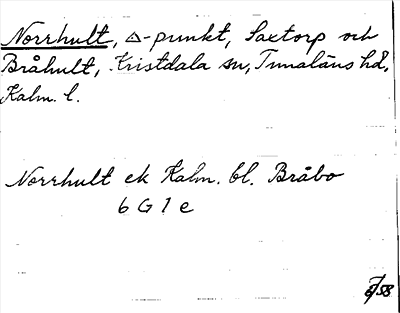 Norrhult, △-punkt, Saxtorp och
Bråhult, Kristdala sn, Tunaläns hd,
Kalm. l.
Norrhult ek Kalm. bl. Bråbo
6 G 1 e
58